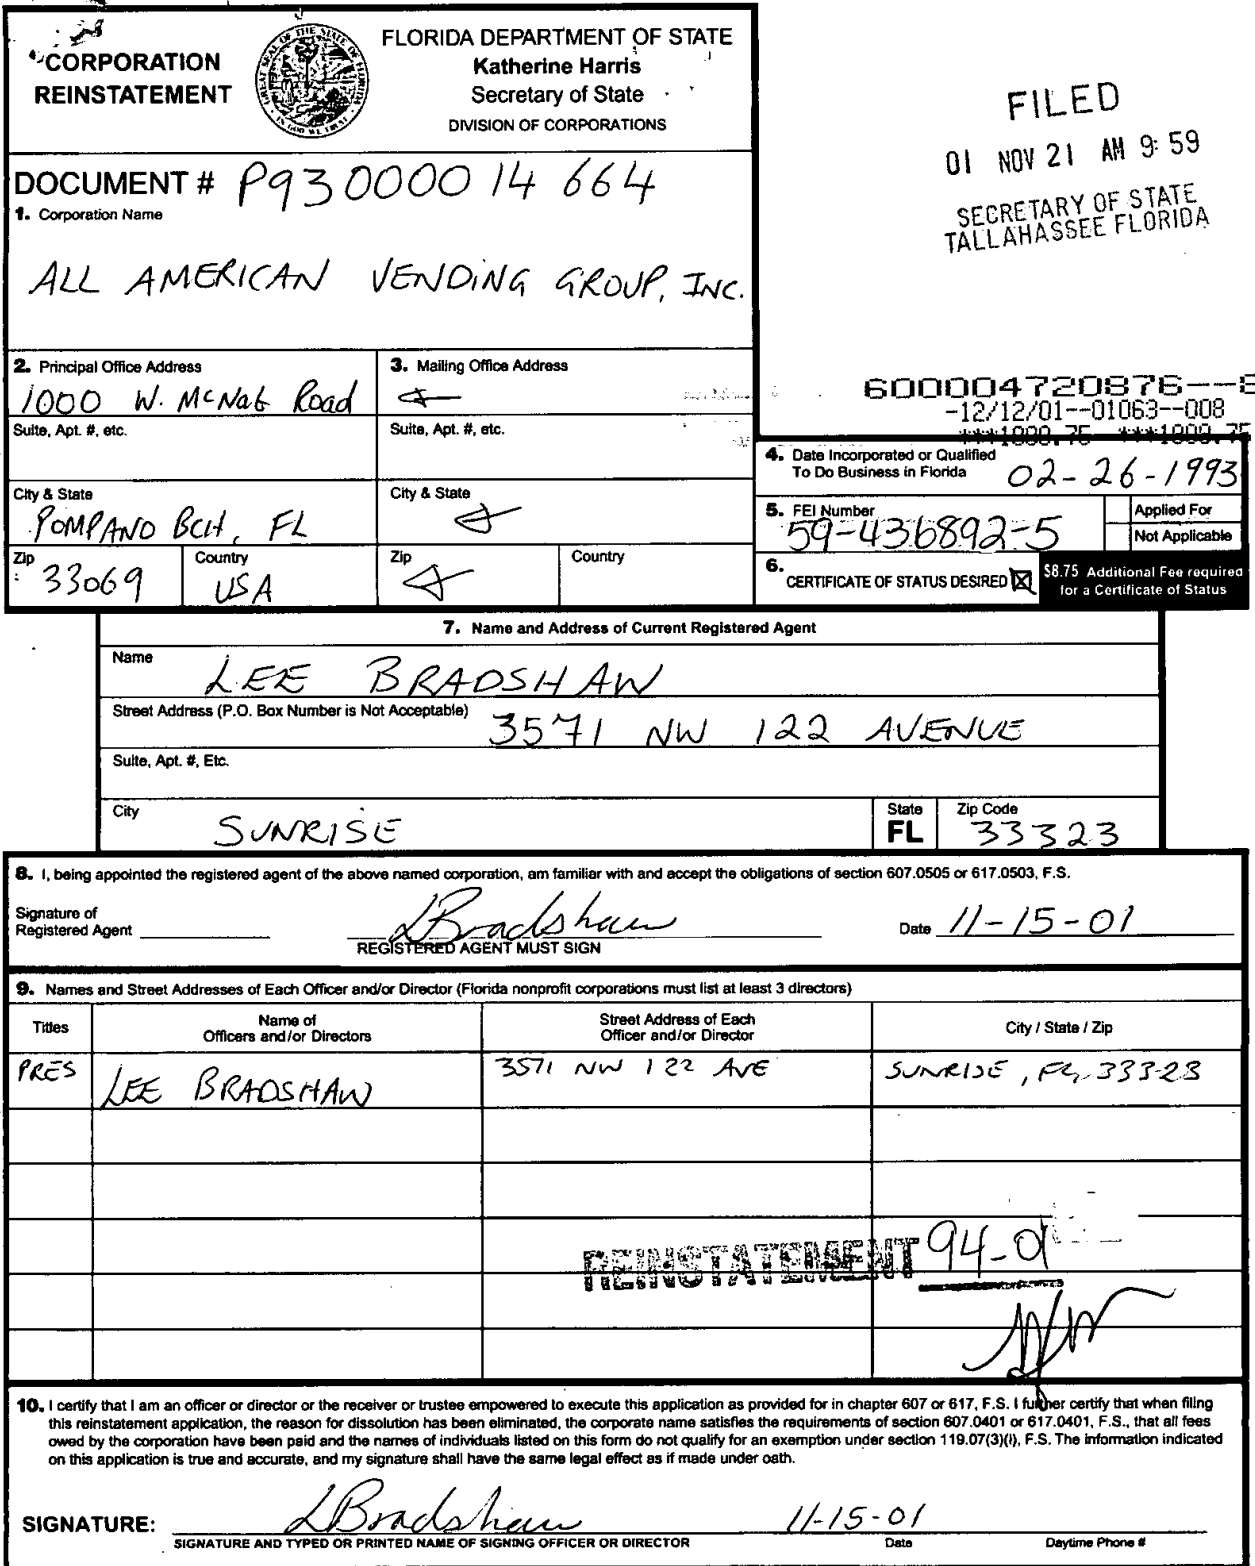 CORPORATION
REINSTATEMENT
FLORIDA DEPARTMENT OF STATE
Katherine Harris
Secretary of State
DIVISION OF CORPORATIONS
FILED
01 NOV 21 AM 9:59
SECRETARY OF STATE
TALLAHASSEE FLORIDA
DOCUMENT # P93000014664
1. Corporation Name
ALL AMERICAN VENDING GROUP, INC.
2. Principal Office Address
1000 W. McNab Road
3. Mailing Office Address
Suite, Apt. #, etc.
Suite, Apt. #, etc.
City & State
POMPANO BCH, FL
City & State
Zip
33069
Country
USA
Zip
Country
600004720876--8
-12/12/01--01063--008
4. Date Incorporated or Qualified
To Do Business in Florida
02-26-1993
5. FEI Number
59-436892-5
Applied For
Not Applicable
6. CERTIFICATE OF STATUS DESIRED
$8.75 Additional Fee required
for a Certificate of Status
7. Name and Address of Current Registered Agent
Name
LEE BRADSHAW
Street Address (P.O. Box Number is Not Acceptable)
3571 NW 122 AVENUE
Suite, Apt. #, Etc.
City
SUNRISE
State
FL
Zip Code
33323
8. I, being appointed the registered agent of the above named corporation, am familiar with and accept the obligations of section 607.0505 or 617.0503, F.S.
Signature of
Registered Agent
LBradshaw
REGISTERED AGENT MUST SIGN
Date 11-15-01
9. Names and Street Addresses of Each Officer and/or Director (Florida nonprofit corporations must list at least 3 directors)
Titles
Name of
Officers and/or Directors
Street Address of Each
Officer and/or Director
City / State / Zip
PRES
LEE BRADSHAW
3571 NW 122 AVE
SUNRISE, FL, 33323
REINSTATEMENT 94-01
10. I certify that I am an officer or director or the receiver or trustee empowered to execute this application as provided for in chapter 607 or 617, F.S. I further certify that when filing
this reinstatement application, the reason for dissolution has been eliminated, the corporate name satisfies the requirements of section 607.0401 or 617.0401, F.S., that all fees
owed by the corporation have been paid and the names of individuals listed on this form do not qualify for an exemption under section 119.07(3)(i), F.S. The information indicated
on this application is true and accurate, and my signature shall have the same legal effect as if made under oath.
SIGNATURE:
LBradshaw
11-15-01
SIGNATURE AND TYPED OR PRINTED NAME OF SIGNING OFFICER OR DIRECTOR
Date
Daytime Phone #